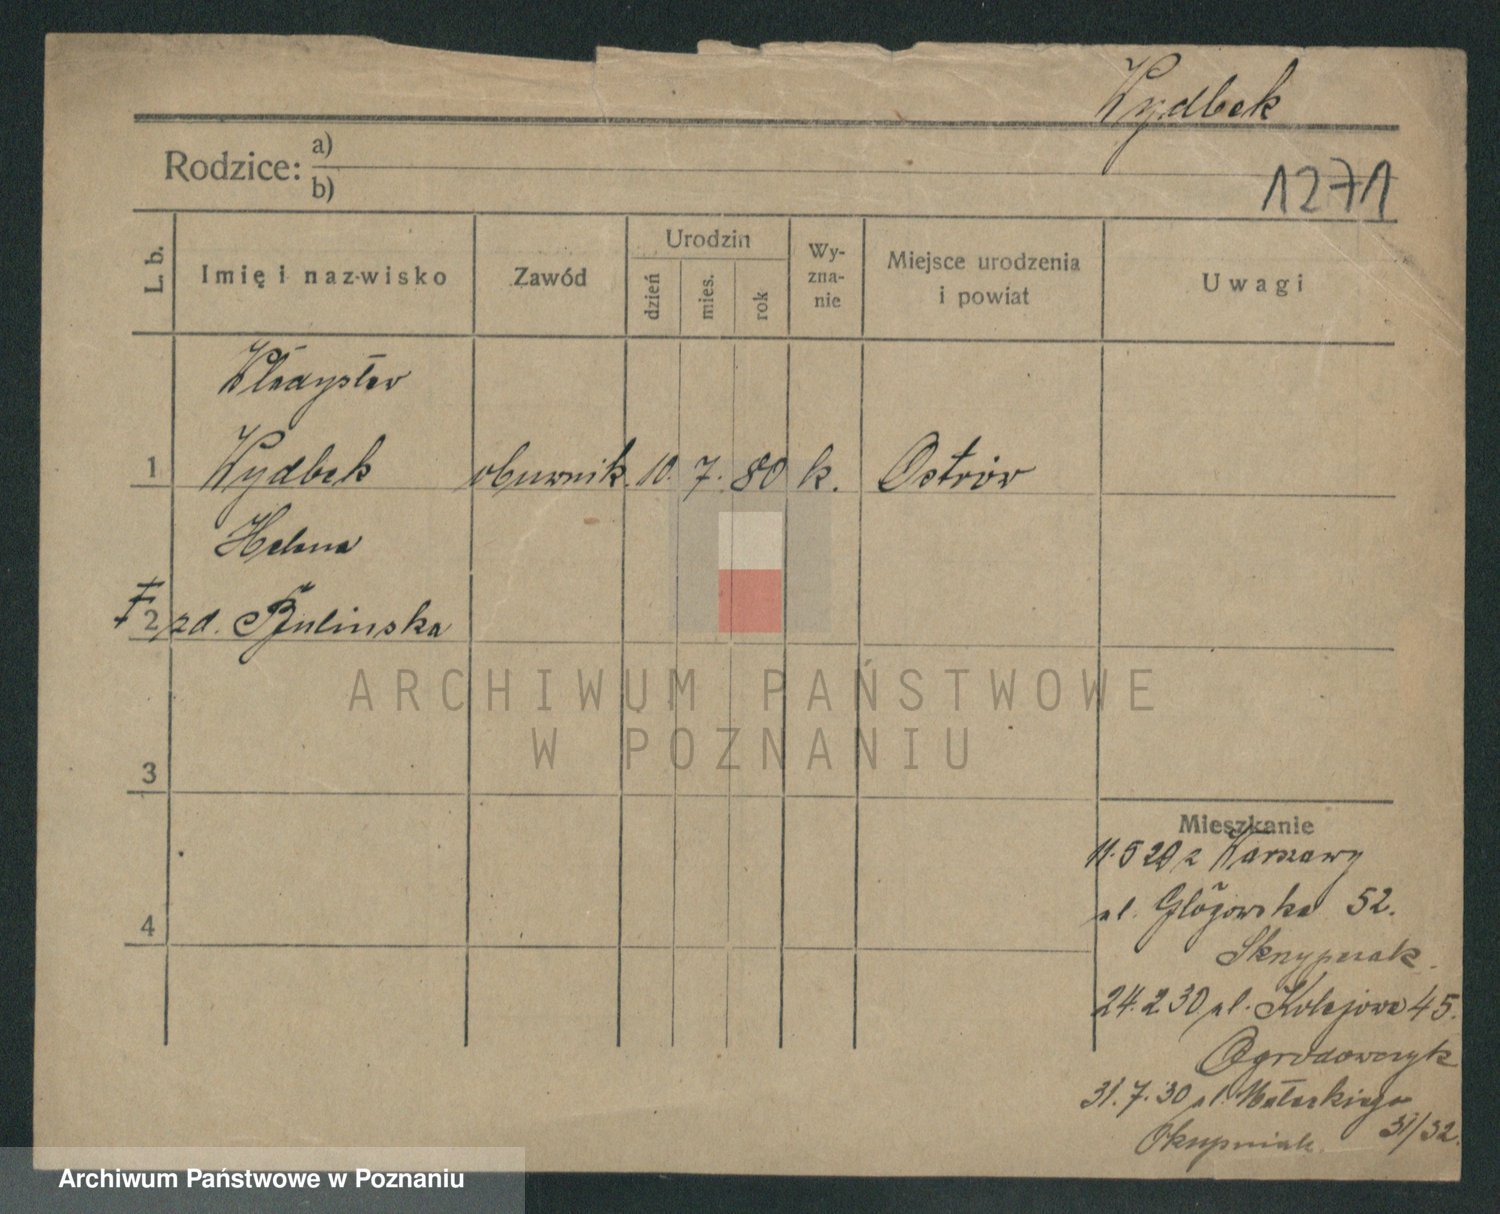 Wydbek
Rodzice: a)
b)
1271
L. b.
Imię i nazwisko
Zawód
Urodzin
dzień
mies.
rok
Wy-
zna-
nie
Miejsce urodzenia
i powiat
Uwagi
Władysław
1 Wydbek obuwnik. 10. 7. 80 k. Ostrów
Helena
2 zd. Bulinska
3
4
Mieszkanie
11.5 29 z Warszawy
ul. Glogowska 52.
Skrzypczak.
24.2 30 ul. Kolejowa 45.
Ogrodowczyk
31.7.30 ul. Małeckiego
31/32.
Okupniak.
ARCHIWUM PAŃSTWOWE
W POZNANIU
Archiwum Państwowe w Poznaniu